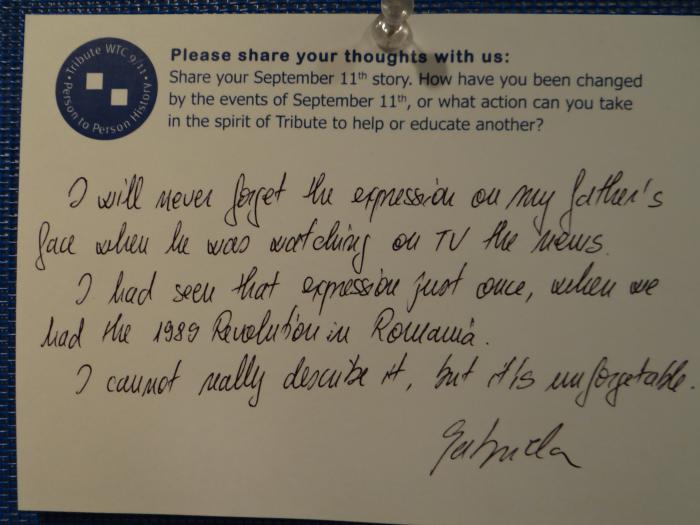 Tribute WTC 9/11 • Person to Person History •
Please share your thoughts with us:
Share your September 11th story. How have you been changed
by the events of September 11th, or what action can you take
in the spirit of Tribute to help or educate another?
I will never forget the expression on my father's
face when he was watching on TV the news.
I had seen that expression just once, when we
had the 1989 Revolution in Romania.
I cannot really describe it, but it is unforgetable.
Gabriela